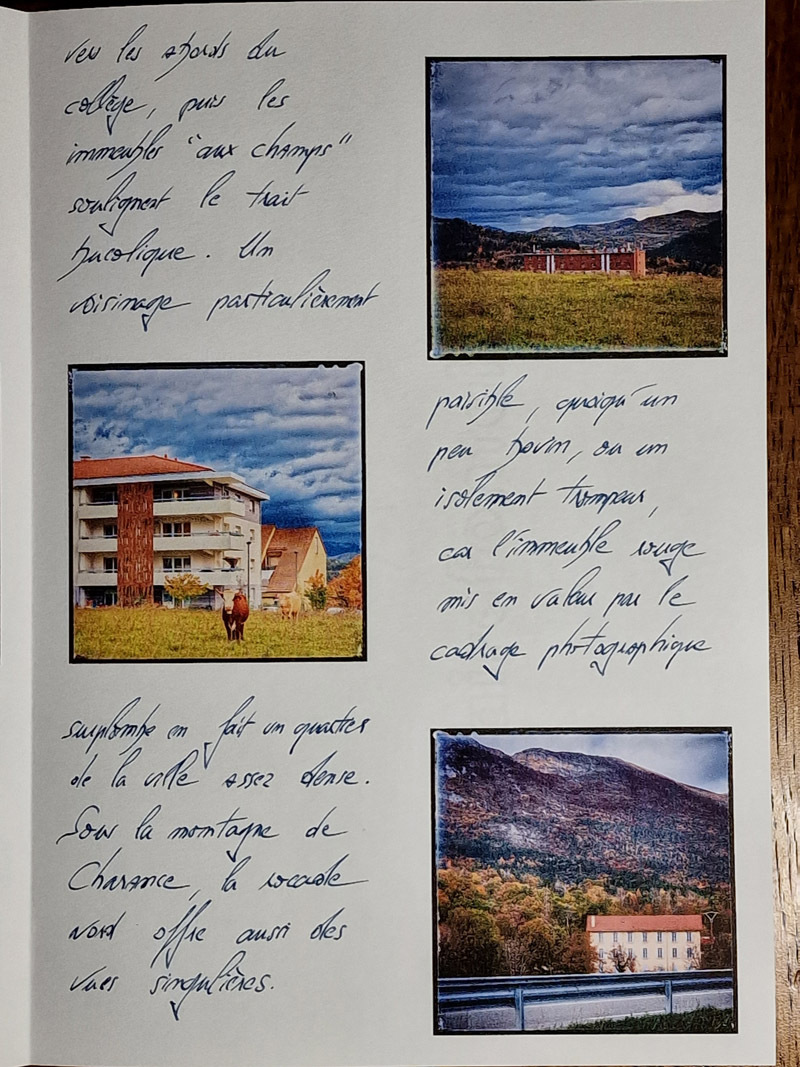 vers les abords du
collège, puis les
immeubles "aux champs"
soulignent le trait
bucolique. Un
voisinage particulièrement
paisible, quoiqu'un
peu bovin, ou un
isolement trompeur,
car l'immeuble rouge
mis en valeur par le
cadrage photographique
surplombe en fait un quartier
de la ville assez dense.
Sous la montagne de
Charance, la rocade
nord offre aussi des
vues singulières.